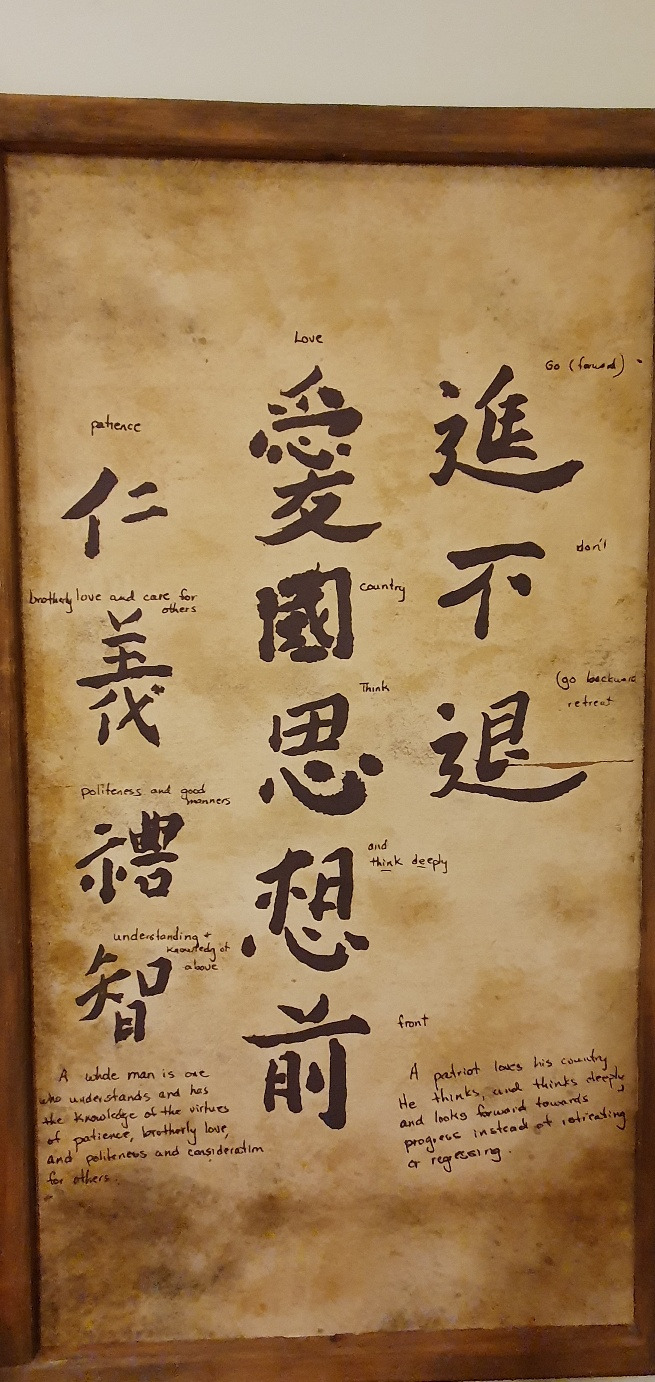 Love
愛
國
country
思
Think
想
and
think deeply
前
front
進
Go (forward)
不
don't
退
(go backward
retreat
patience
仁
brotherly love and care for
others
義
politeness and good
manners
禮
understanding +
knowledg of
above
智
A whole man is one
who understands and has
the knowledge of the virtues
of patience, brotherly love,
and politeness and consideration
for others.
A patriot loves his country
He thinks, and thinks deeply
and looks forward towards
progress instead of retreating
or regressing.